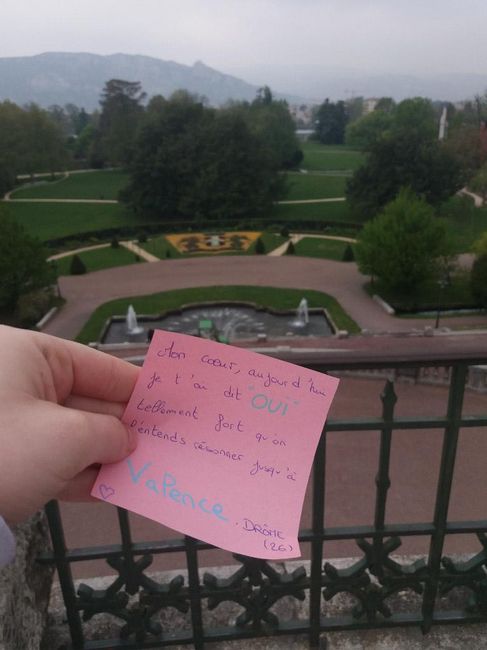 Mon cœur, aujourd'hui
je t'ai dit "OUI"
tellement fort qu'on
l'entends résonner jusqu'à
Valence. DRÔME
(26)